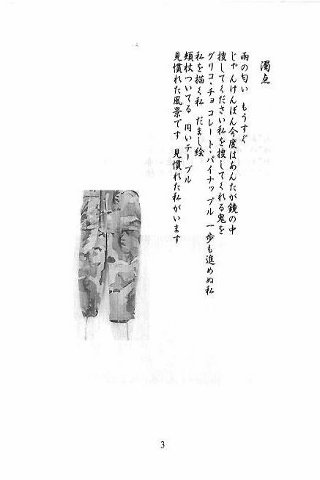 濁点
雨の匂い もうすぐ
じゃんけんぽん今度はあんたが鏡の中
捜してください私を捜してくれる鬼を
グリコ・チョコレート・パイナップル 一歩も進めぬ私
私を描く私 だまし絵
頬杖ついてる 円いテーブル
見慣れた風景です 見慣れた私がいます
3